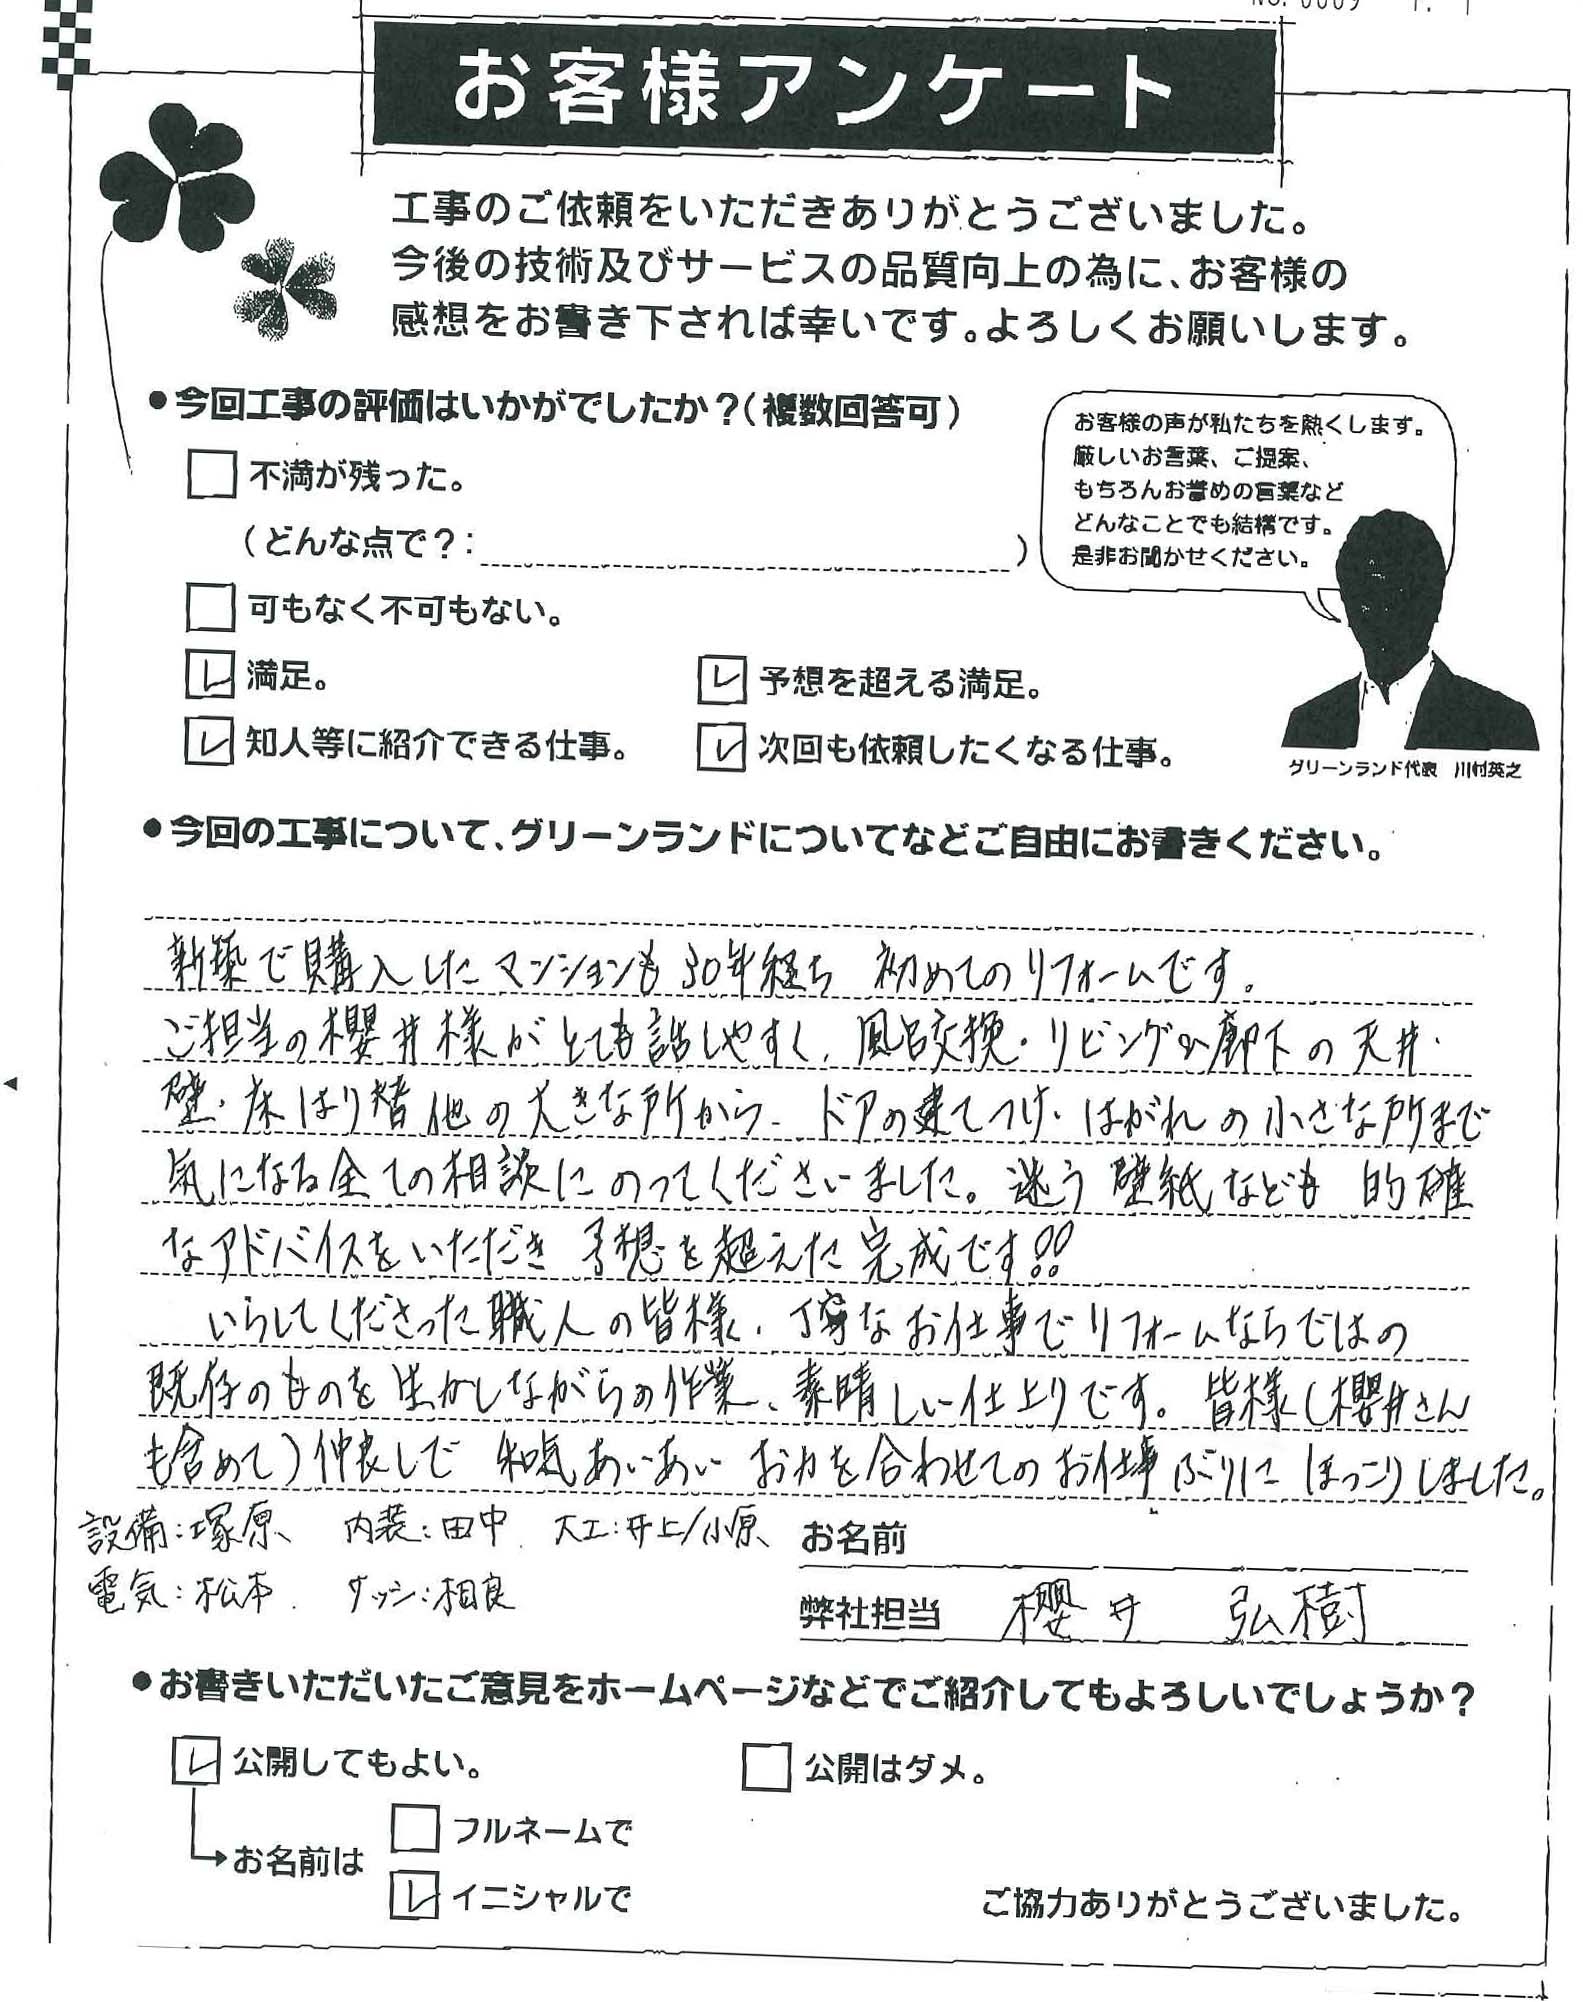 NO. 0009 P. 1
お客様アンケート
工事のご依頼をいただきありがとうございました。
今後の技術及びサービスの品質向上の為に、お客様の
感想をお書き下されば幸いです。よろしくお願いします。
●今回工事の評価はいかがでしたか?(複数回答可)
お客様の声が私たちを熱くします。
厳しいお言葉、ご提案、
もちろんお誉めの言葉など
どんなことでも結構です。
是非お聞かせください。
不満が残った。
(どんな点で?: )
可もなく不可もない。
満足。
予想を超える満足。
知人等に紹介できる仕事。
次回も依頼したくなる仕事。
グリーンランド代表 川村英之
●今回の工事について、グリーンランドについてなどご自由にお書きください。
新築で購入したマンションも30年経ち 初めてのリフォームです。
ご担当の櫻井様がとても話しやすく、風呂交換・リビング&廊下の天井・
壁・床はり替他の大きな所から、ドアの建てつけ・はがれの小さな所まで
気になる全ての相談にのってくださいました。迷う壁紙なども 的確
なアドバイスをいただき 予想を超えた完成です!!
いらしてくださった職人の皆様、丁寧なお仕事でリフォームならではの
既存のものを生かしながらの作業、素晴しい仕上りです。皆様(櫻井さん
も含めて)仲良しで 和気あいあい お力を合わせてのお仕事ぶりに ほっこりしました。
設備:塚原、 内装:田中 大工:井上/小原、
電気:松本 サッシ:相良
お名前
弊社担当 櫻井 弘樹
●お書きいただいたご意見をホームページなどでご紹介してもよろしいでしょうか?
公開してもよい。
公開はダメ。
お名前は
フルネームで
イニシャルで
ご協力ありがとうございました。